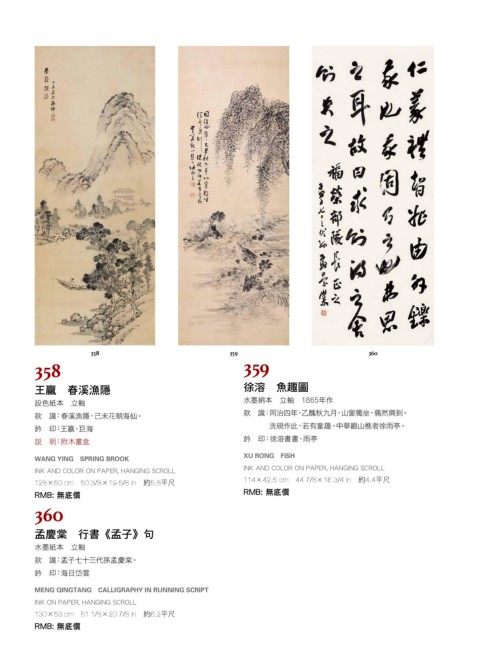 春溪漁隱
同治四年
仁義禮智非由外鑠
我也我固有之也弗思
之耳故曰求則得之舍
則失之
福榮部陵長正之
孟子七十三代孫孟慶棠
358
359
360
358
王嬴 春溪漁隱
設色紙本 立軸
款 識：春溪漁隱。己未花朝海仙。
鈐 印：王嬴、巨海
説 明：附木畫盒
WANG YING SPRING BROOK
INK AND COLOR ON PAPER, HANGING SCROLL
128×50 cm 50 3/8×19 5/8 in 約5.8平尺
RMB: 無底價
359
徐溶 魚趣圖
水墨絹本 立軸 1865年作
款 識：同治四年，乙醜秋九月，山窗獨坐，偶然興到，
洗硯作此，若有童趣。中華觀山樵者徐雨亭。
鈐 印：徐溶書畫、雨亭
XU RONG FISH
INK AND COLOR ON PAPER, HANGING SCROLL
114×42.5 cm 44 7/8×16 3/4 in 約4.4平尺
RMB: 無底價
360
孟慶棠 行書《孟子》句
水墨紙本 立軸
款 識：孟子七十三代孫孟慶棠。
鈐 印：海日岱雲
MENG QINGTANG CALLIGRAPHY IN RUNNING SCRIPT
INK ON PAPER, HANGING SCROLL
130×53 cm 51 1/8×20 7/8 in 約6.2平尺
RMB: 無底價